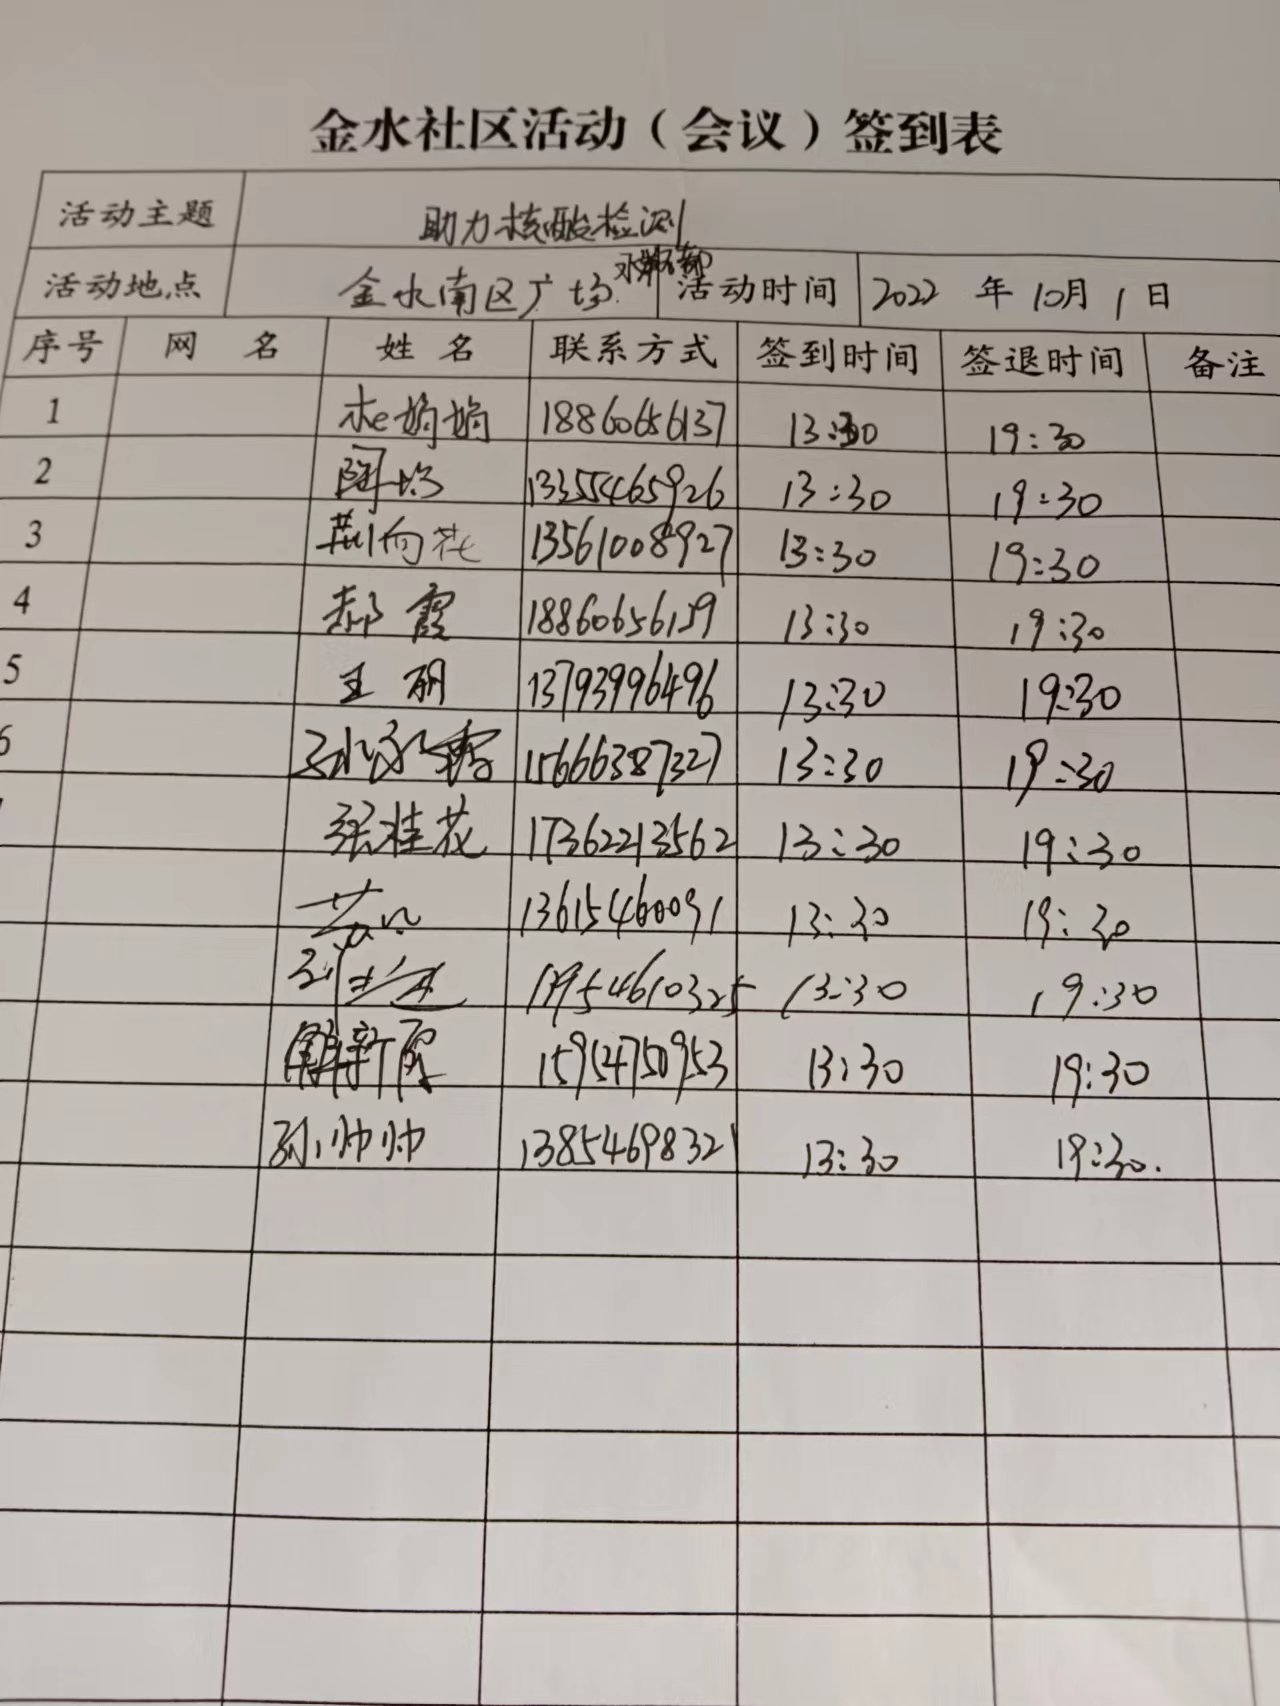 金水社区活动（会议）签到表
活动主题 助力核酸检测
活动地点 金水南区广场 活动时间 2022 年 10月 1 日
序号 网 名 姓 名 联系方式 签到时间 签退时间 备注
1 娟娟 18860656137 13:30 19:30
2 13355465926 13:30 19:30
3 荆向花 13561008927 13:30 19:30
4 郝霞 18860656159 13:30 19:30
5 王丽 13793996496 13:30 19:30
6 15666387327 13:30 19:30
张桂花 17362213562 13:30 19:30
13615460091 13:30 19:30
13954610325 13:30 19:30
解新霞 15954750953 13:30 19:30
孙帅帅 13854698321 13:30 19:30.